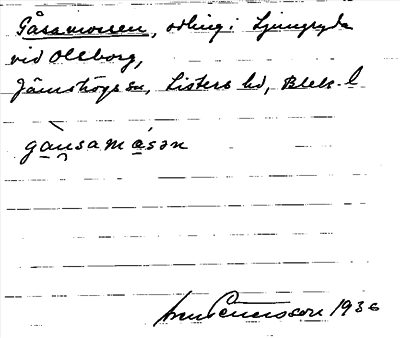 Gåsamossen, odling i Ljungryda
vid Olsborg,
Jämshögs sn, Listers hd, Blek. l
gàu̯samásən
Sven Benson 1936